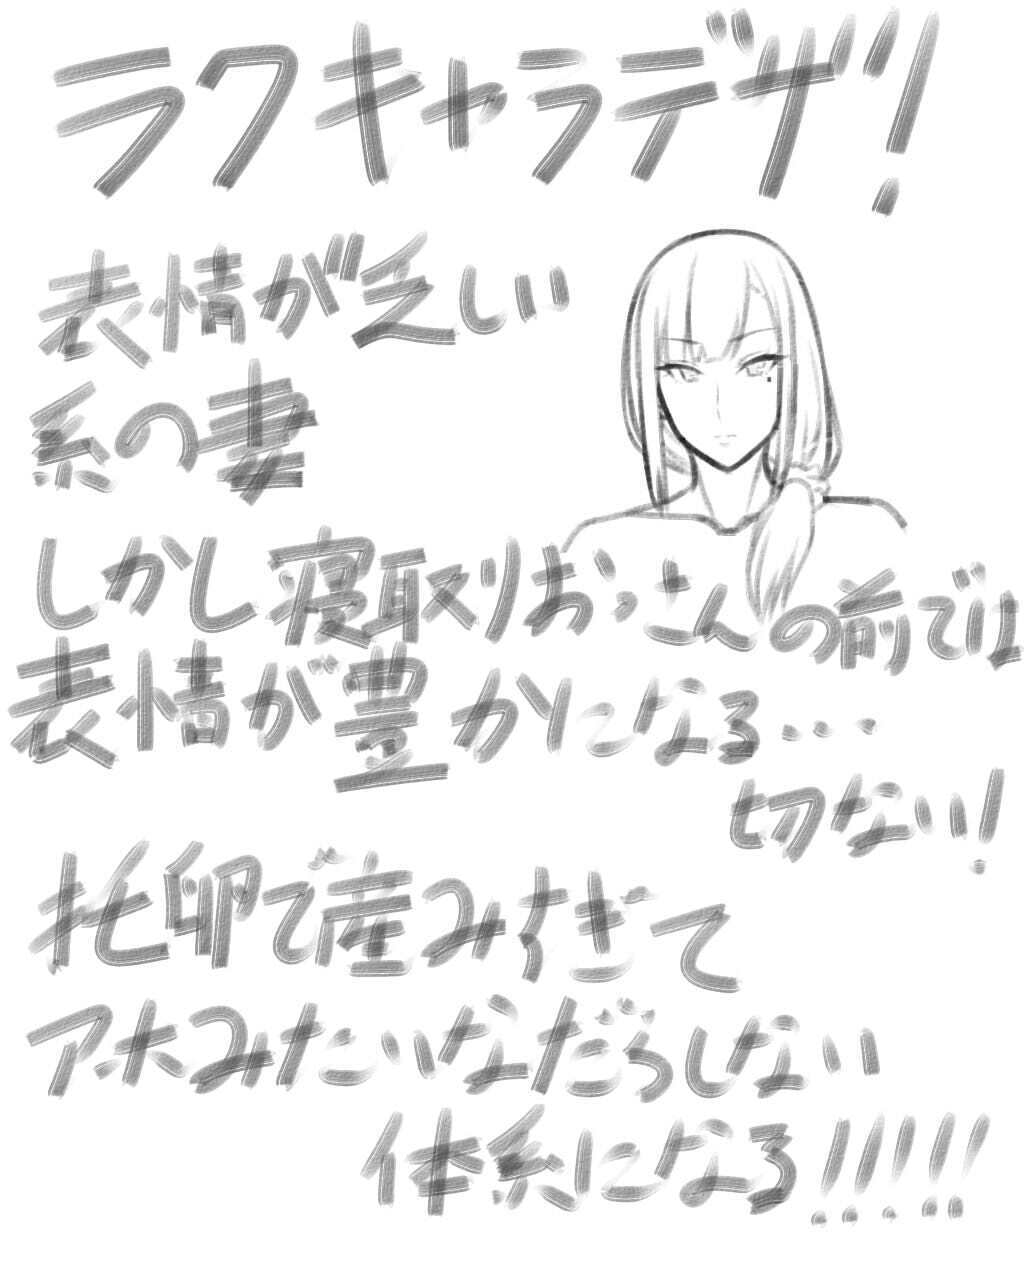 ラクキャラデザ!
表情が乏しい
系の妻
しかし寝取りおっさんの前では
表情が豊かになる…
切ない!
托卵で産みすぎて
アホみたいなだらしない
体系になる!!!!!